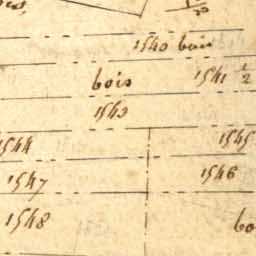 1540 bois
bois 1541 1/2
1543
1544 1545
1547 1546
1548 bo